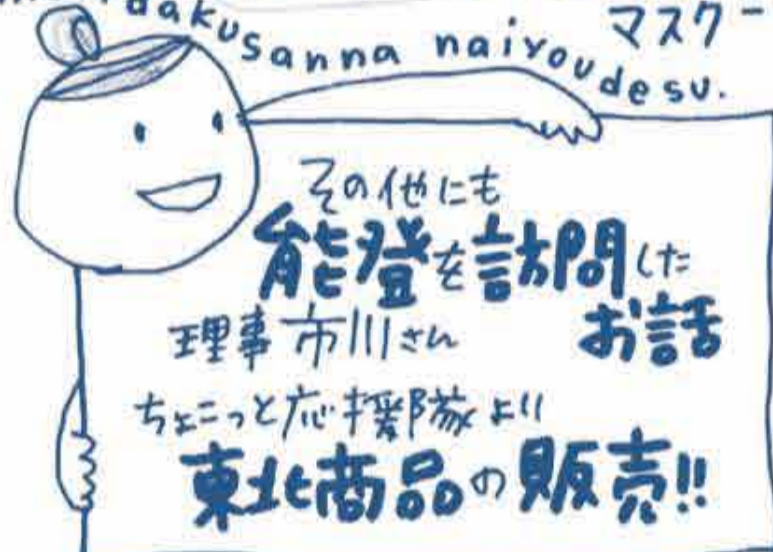 dakusanna naiyoudesu.
マスクー
その他にも
能登を訪問した
理事 市川さん お話
ちょこっと応援隊より
東北商品の販売!!